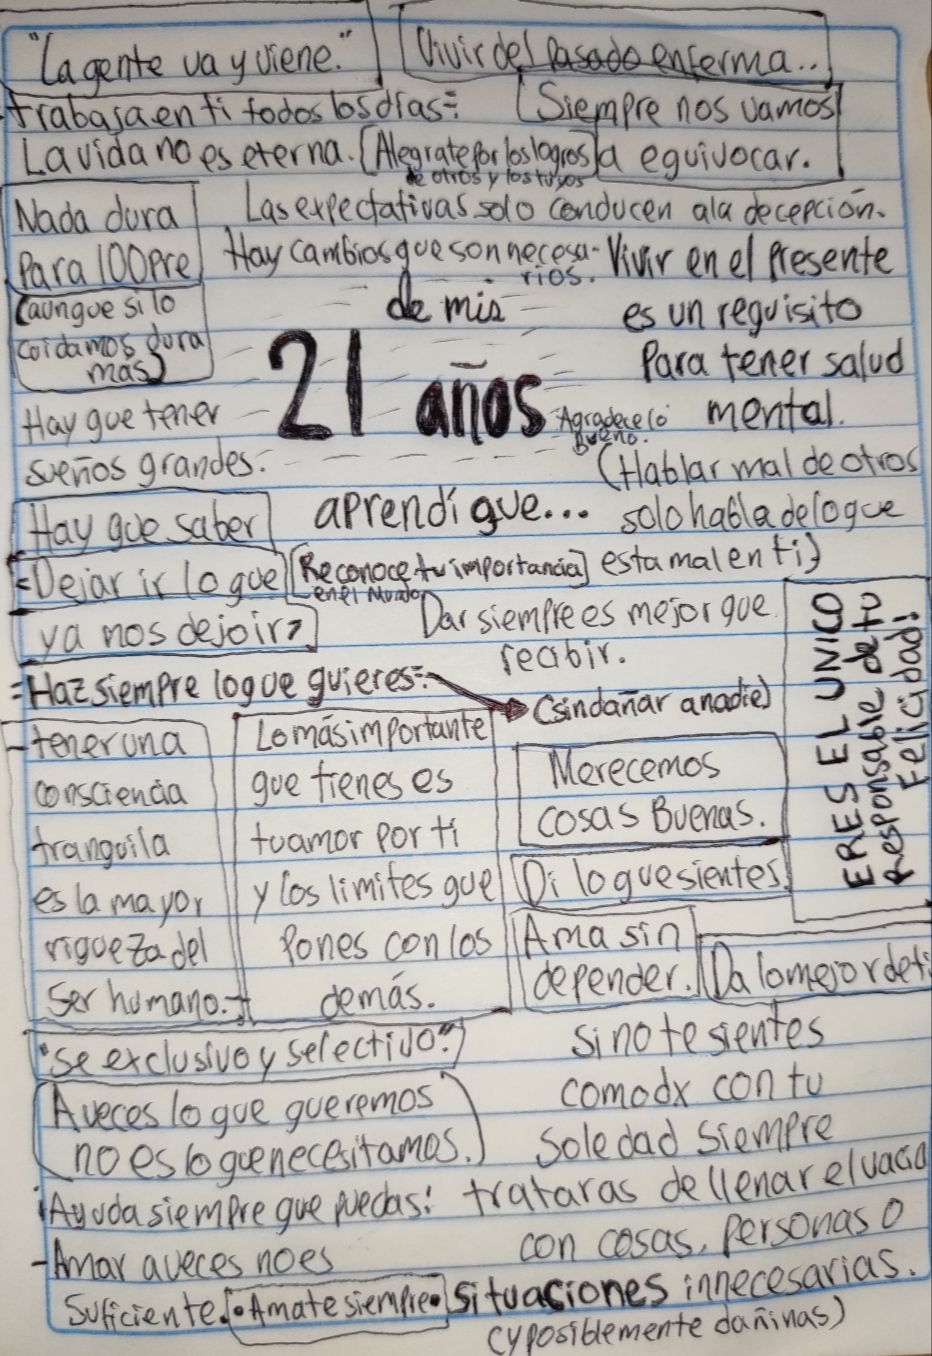 "La gente va y viene."
Vivir del pasado enferma..
trabaja en ti todos los días =
Siempre nos vamos
a equivocar.
La vida no es eterna.
Alegrate por los logros
de otros y los tuyos
Nada dura
Para 100pre
(aunque si lo
cuidamos dura
mas)
Las expectativas solo conducen a la decepción.
Hay cambios que son necesa-
rios.
Vivir en el presente
es un requisito
Para tener salud
mental.
de mis
21 años
aprendí que...
Agradece lo
Bueno.
Hay que tener
sueños grandes.
(Hablar mal de otros
solo habla de lo que
esta mal en ti)
Hay que saber
Dejar ir lo que
ya nos dejo ir
Reconoce tu importancia
en el Mundo
Dar siempre es mejor que
recibir.
= Haz siempre lo que quieres =
(sin dañar a nadie)
ERES EL UNICO
Responsable de tu
Felicidad!
- tener una
consciencia
tranquila
es la mayor
riqueza del
Ser humano. -
Lo más importante
que tienes es
tu amor por ti
y los limites que
Pones con los
demás.
Merecemos
cosas Buenas.
Di lo que sientes
Ama sin
depender.
Da lo mejor de ti
"Se exclusivo y selectivo"
A veces lo que queremos
no es lo que necesitamos.
¡Ayuda siempre que puedas!
- Amar a veces no es
Suficiente.
• Amate siempre •
si no te sientes
comodx con tu
Soledad siempre
trataras de llenar el vacio
con cosas, personas o
situaciones innecesarias.
(y posiblemente dañinas)